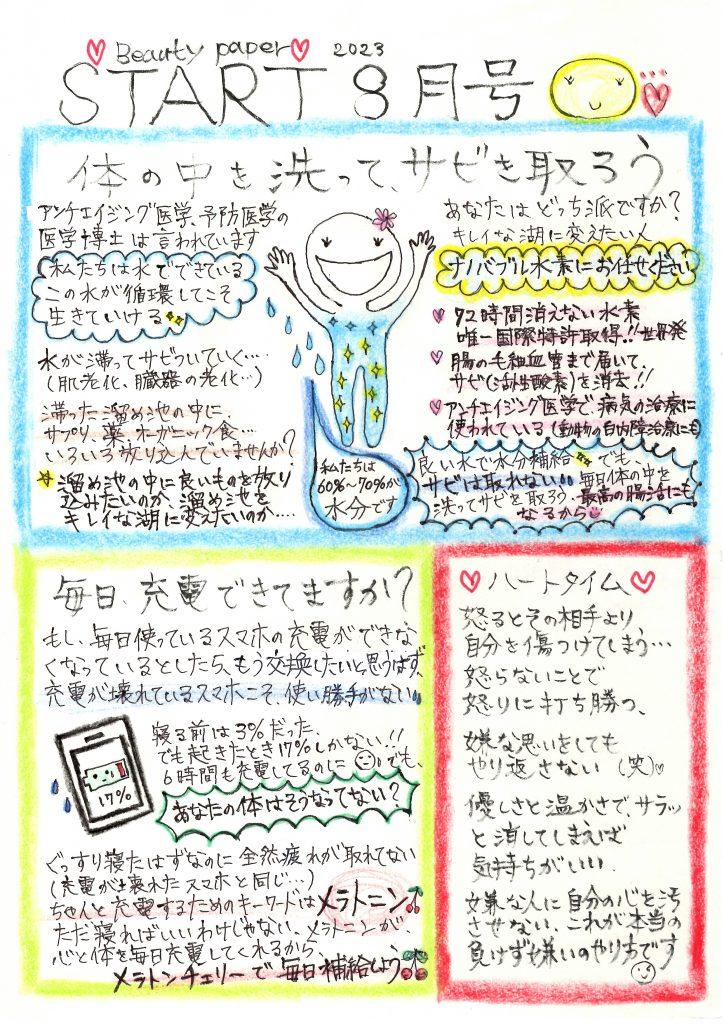 Beauty paper 2023
START 8月号
体の中を洗って、サビを取ろう
アンチエイジング医学、予防医学の
医学博士は言われています
私たちは水でできている
この水が循環してこそ
生きていける
水が滞ってサビついていく…
(肌老化、臓器の老化…)
滞った溜め池の中に
サプリ、薬、オーガニック食…
いろいろ放り込んでいませんか?
溜め池の中に良いものを放り
込みたいのか、溜め池を
キレイな湖に変えたいのか…
私たちは
60%〜70%が
水分です
あなたはどっち派ですか?
キレイな湖に変えたい人
ナノバブル水素にお任せください
72時間消えない水素
唯一国際特許取得!!世界発
腸の毛細血管まで届いて、
サビ(活性酸素)を消去!!
アンチエイジング医学で、病気の治療に
使われている(動物の白内障治療にも)
良い水で水分補給でも、
サビは取れない!!毎日体の中を
洗ってサビを取ろう、最高の腸活にも
なるから
毎日、充電できてますか?
もし、毎日使っているスマホの充電ができな
くなっているとしたら、もう交換したいと思うはず、
充電が壊れているスマホこそ、使い勝手がない
寝る前は3%だった、
でも起きたとき17%しかない!!
6時間も充電してるのに でも、
17%
あなたの体はそうなってない?
ぐっすり寝たはずなのに全然疲れが取れてない
(充電が壊れたスマホと同じ…)
ちゃんと充電するためのキーワードはメラトニン
ただ寝ればいいわけじゃない、メラトニンが、
心と体を毎日充電してくれるから、
メラトンチェリーで毎日補給しよう
ハートタイム
怒るとその相手より、
自分を傷つけてしまう…
怒らないことで
怒りに打ち勝つ、
嫌な思いをしても
やり返さない(笑)
優しさと温かさで、サラッ
と消してしまえば
気持ちがいい、
嫌な人に自分の心を汚
させない、これが本当の
負けず嫌いのやり方です